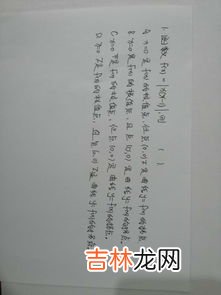 1. 函数 f(x) = |x(x-1)|, 则 ( )
A. x=0是f(x)的极值点, 但点(0,0)不是曲线y=f(x)的拐点
B. x=0是f(x)的极值点, 且点(0,0)是曲线y=f(x)的拐点
C. x=0不是f(x)的极值点, 但点(0,0)是曲线y=f(x)的拐点,
D. x=0不是f(x)的极值点, 且点(0,0)不是曲线y=f(x)的拐点
吉林龙网